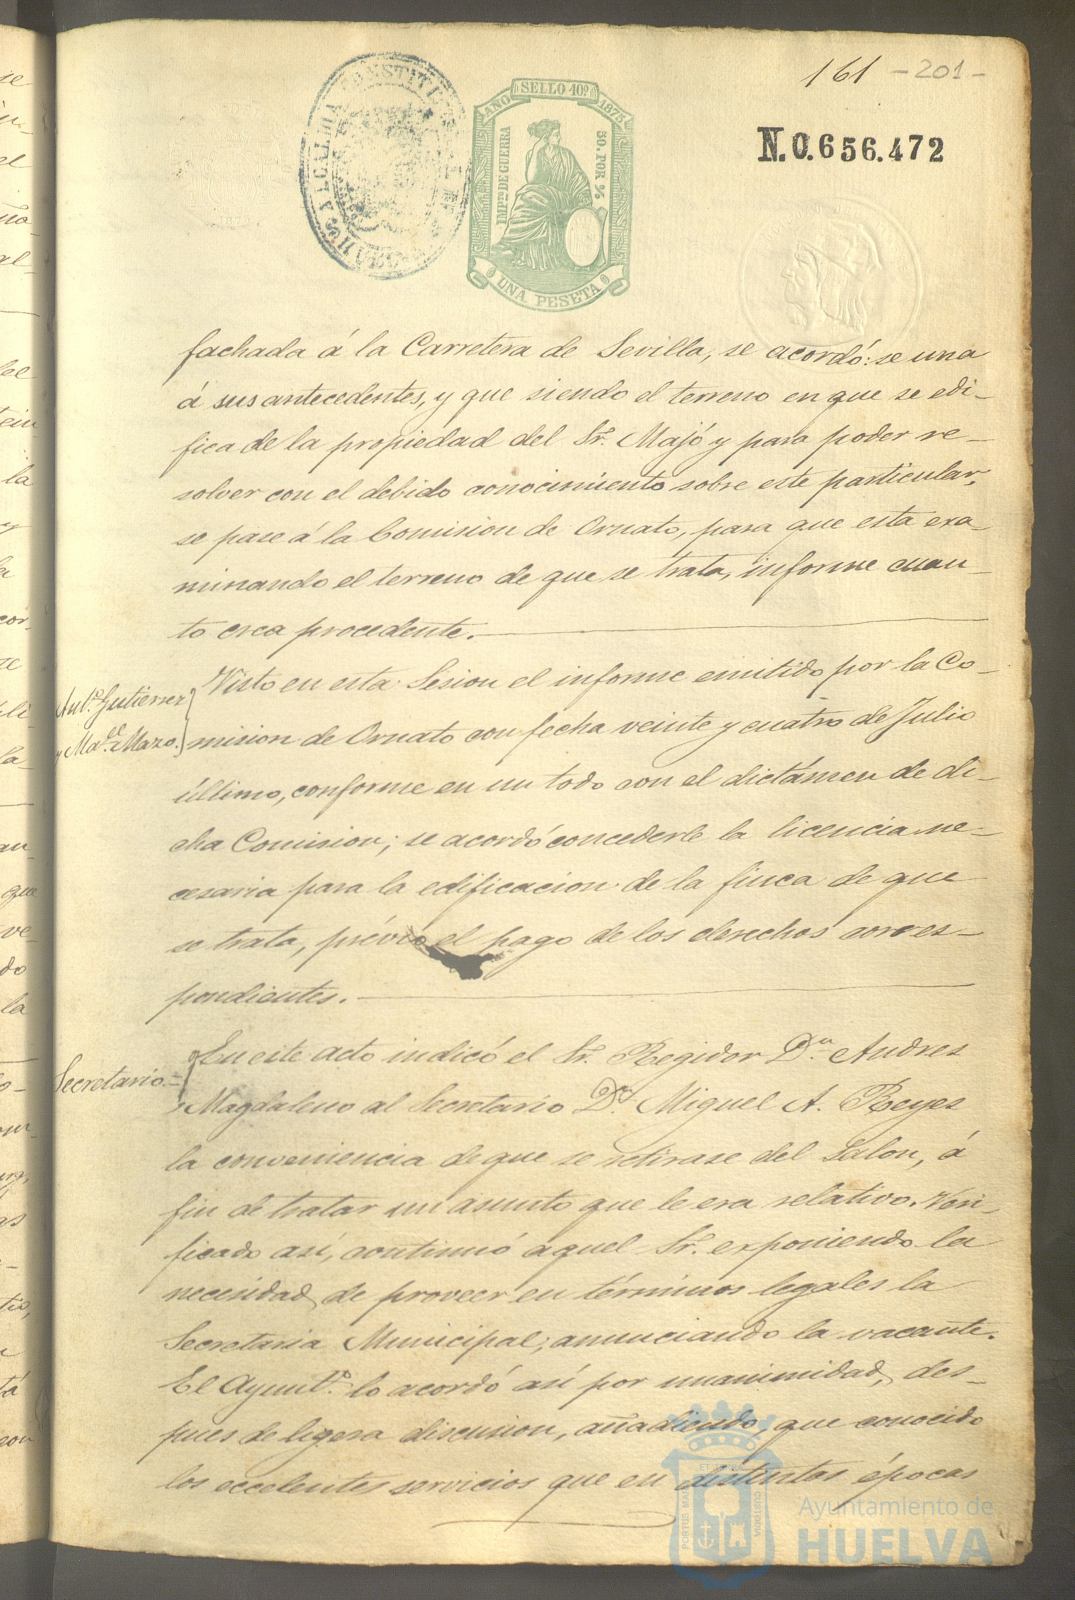 161 - 201 -
ALCALDIA CONSTITUCIONAL
AÑO SELLO 10º 1875
IMPTO DE GUERRA
50. POR %
UNA PESETA
N. 0.656.472
fachada á la Carretera de Sevilla, se acordó: se una
á sus antecedentes, y que siendo el terreno en que se edi-
fica de la propiedad del Sr. Majó y para poder re-
solver con el debido conocimiento sobre este particular,
se pase á la Comision de Ornato, para que esta exa-
minando el terreno de que se trata, informe cuan-
to crea procedente.
Antº. Gutierrez
y Ma. de Mazo.
Visto en esta Sesion el informe emitido por la Co-
mision de Ornato con fecha veinte y cuatro de Julio
último, conforme en un todo con el dictámen de di-
cha Comision; se acordó concederle la licencia ne-
cesaria para la edificacion de la finca de que
se trata, prévio el pago de los derechos corres-
pondientes.
Secretario =
En este acto indicó el Sr. Regidor Dn. Andres
Magdaleno al Secretario Dn. Miguel A. Reyes
la conveniencia de que se retirase del Salon, á
fin de tratar un asunto que le era relativo. Veri-
ficado así, continuó aquel Sr. exponiendo la
necesidad de proveer en términos legales la
Secretaria Municipal, anunciando la vacante.
El Ayuntº. lo acordó así por unanimidad, des-
pues de ligera discusion, añadiendo, que conocido
los eccelentes servicios que en distintas épocas
PORTUS MARIS ET TERRAE CUSTODIA
Ayuntamiento de
HUELVA